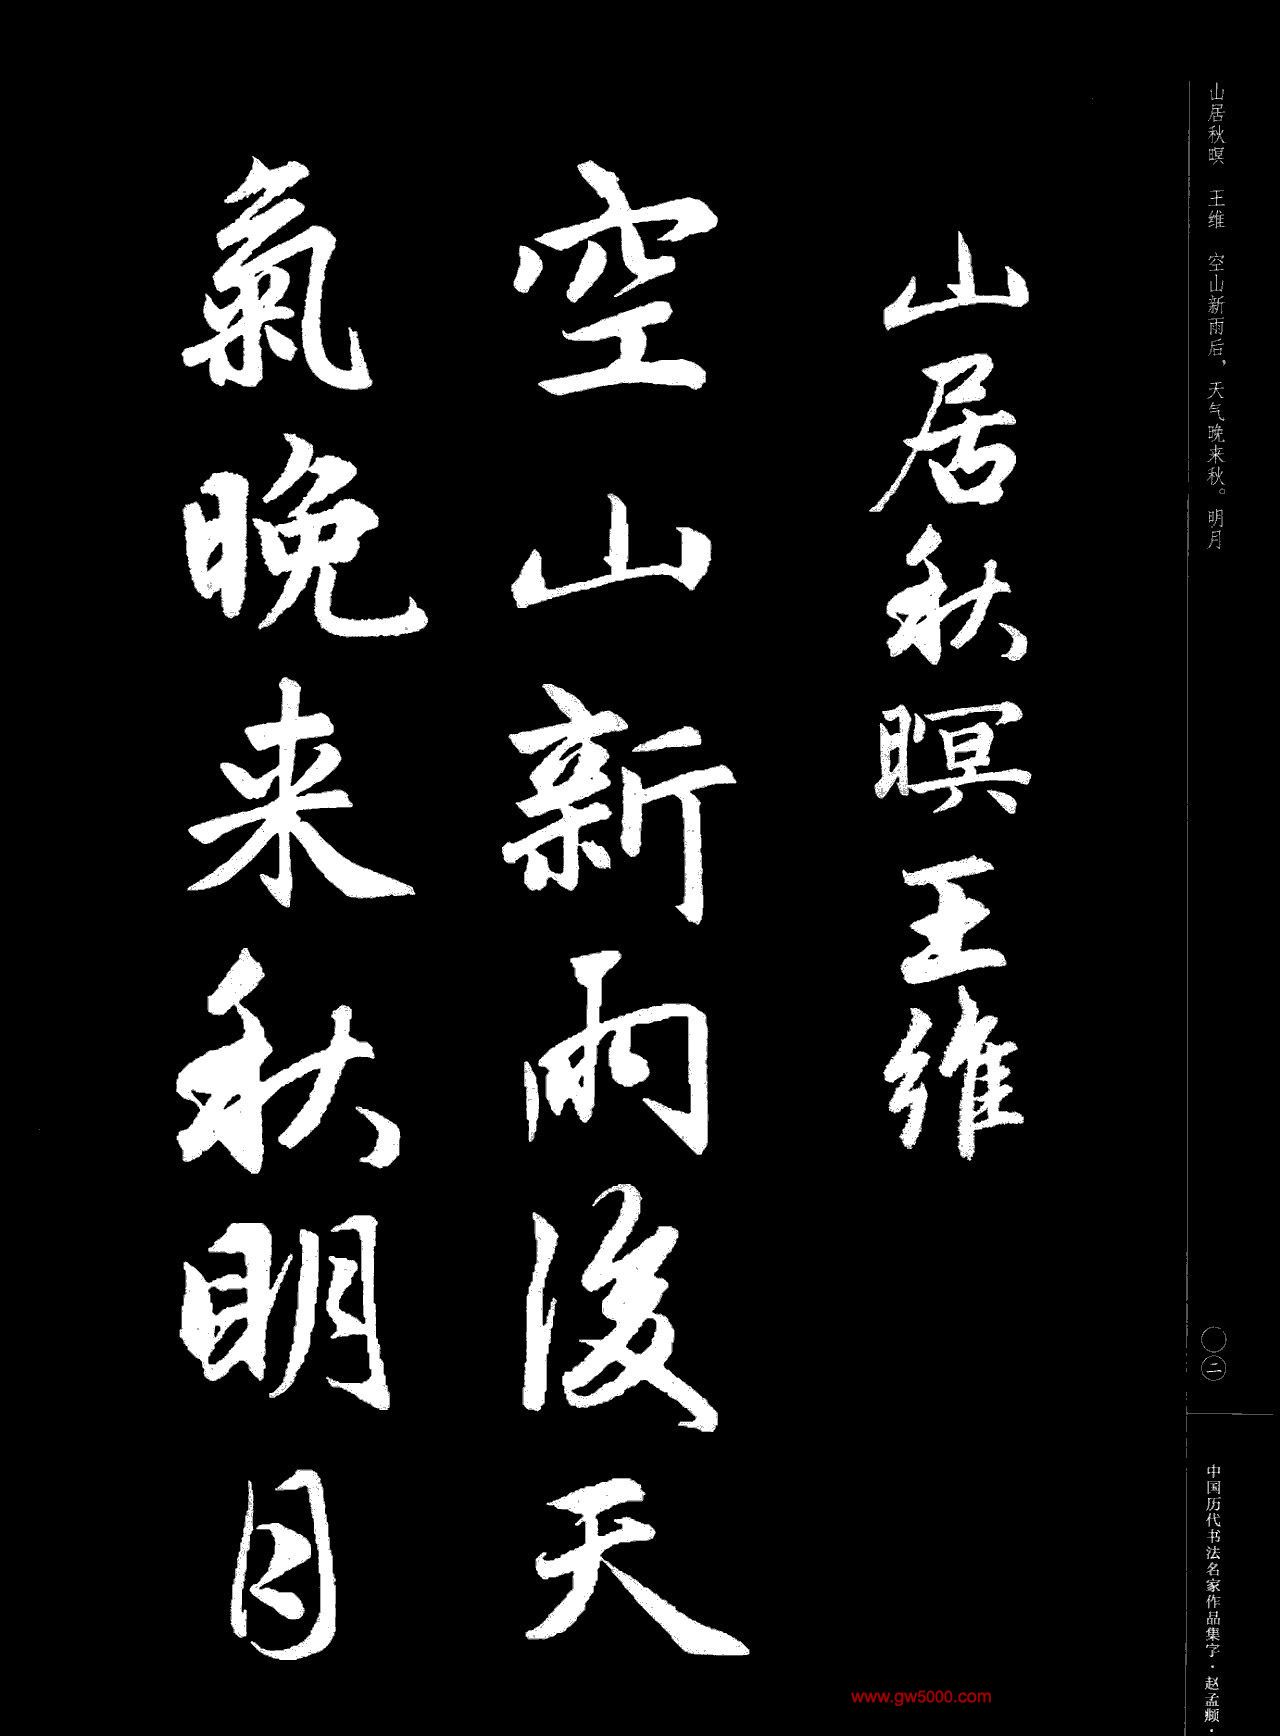 山居秋暝 王维 空山新雨后，天气晚来秋。明月
山居秋暝王維
空山新雨後天
氣晚来秋明月
〇二
中国历代书法名家作品集字·赵孟頫·
www.gw5000.com